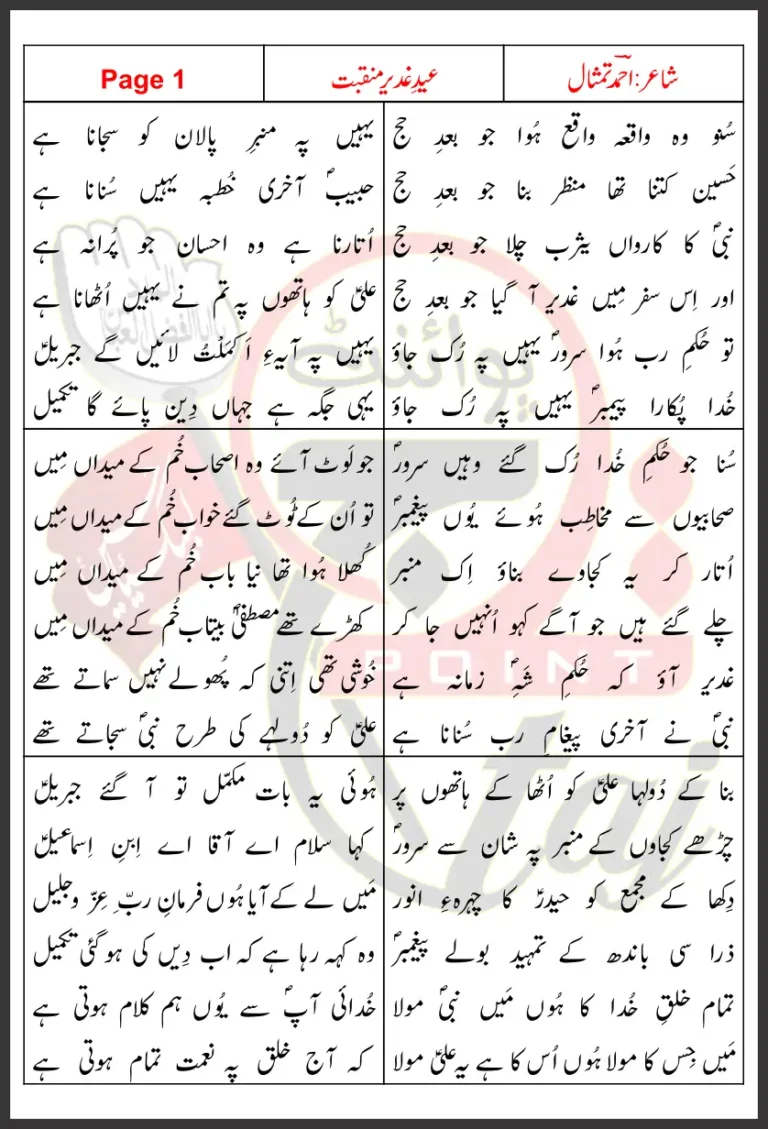 شاعر: احمد تمثال
عیدِ غدیر منقبت
Page 1
سُنو وہ واقعہ واقع ہُوا جو بعدِ حج
حَسین کتنا تھا منظر بنا جو بعدِ حج
نبیؐ کا کارواں یثرب چلا جو بعدِ حج
اور اِس سفر مِیں غدیر آ گیا جو بعدِ حج
تو حُکمِ رب ہُوا سرورؐ یہیں پہ رُک جاؤ
خُدا پُکارا پیمبرؐ یہیں پہ رُک جاؤ
یہیں پہ منبرِ پالان کو سجانا ہے
حبیبؐ آخری خُطبہ یہیں سُنانا ہے
اُتارنا ہے وہ احسان جو پُرانہ ہے
علیؑ کو ہاتھوں پہ تم نے یہیں اُٹھانا ہے
یہیں پہ آیہءِ اَکْمَلْتُ لائیں گے جبریلؑ
یہی جگہ ہے جہاں دِین پائے گا تکمیل
سُنا جو حُکمِ خُدا رُک گئے وہیں سرورؐ
صحابیوں سے مخاطِب ہُوئے یُوں پیغمبرؐ
اُتار کر یہ کجاوے بناؤ اِک منبر
چلے گئے ہیں جو آگے کہو اُنہیں جا کر
غدیر آؤ کہ حُکمِ شہِؐ زمانہ ہے
نبیؐ نے آخری پیغامِ رب سُنانا ہے
جو لَوٹ آئے وہ اصحاب خُم کے میداں مِیں
تو اُن کے ٹُوٹ گئے خواب خُم کے میداں مِیں
کُھلا ہُوا تھا نیا باب خُم کے میداں مِیں
کھڑے تھے مصطفیٰؐ بیتاب خُم کے میداں مِیں
خُوشی تھی اِتنی کہ پُھولے نہیں سماتے تھے
علیؑ کو دُولہے کی طرح نبیؐ سجاتے تھے
بنا کے دُولہا علیؑ کو اُٹھا کے ہاتھوں پر
چڑھے کجاوں کے منبر پہ شان سے سرورؐ
دِکھا کے مجمع کو حیدرؑ کا چہرہءِ انور
ذرا سی باندھ کے تمہید بولے پیغمبرؐ
تمام خلقِ خُدا کا ہُوں مَیں نبیؐ مولا
مَیں جِس کا مولا ہُوں اُس کا ہے یہ علیؑ مولا
ہُوئی یہ بات مکمّل تو آ گئے جبریلؑ
کہا سلام اے آقا اے اِبنِ اِسماعیلؑ
مَیں لے کے آیا ہُوں فرمانِ ربِّ عِزّ و جلیل
وہ کہہ رہا ہے کہ اب دِیں کی ہو گئی تکمیل
خُدائی آپؐ سے یُوں ہم کلام ہوتی ہے
کہ آج خلق پہ نعمت تمام ہوتی ہے
پوائنٹ
POINT
taj